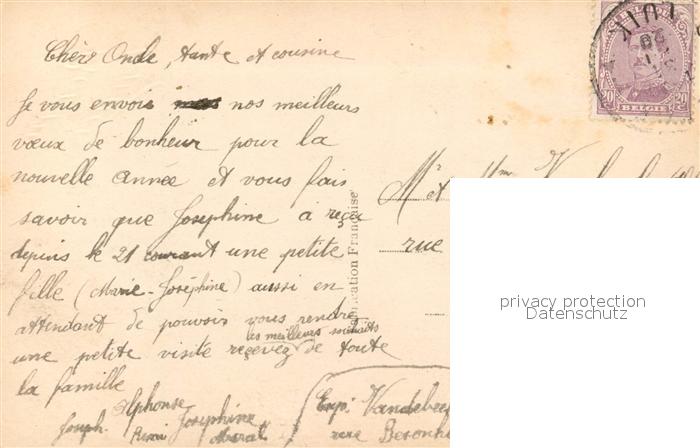 Chèrs Oncle, tante et cousine
Je vous envoie nos meilleurs
vœux de bonheur pour la
nouvelle année et vous fais
savoir que Joséphine à reçu
depuis le 21 courant une petite
fille (Marie-Joséphine) aussi en
attendant de pouvoir vous rendre
une petite visite reçevez les meilleurs souhaits de toute
la famille
Alphonse
Joseph. Joséphine
Rémi
BELGIQUE
20 c 20 c
BELGIE
Mr et Mme
rue
Exp:
rue
privacy protection
Datenschutz